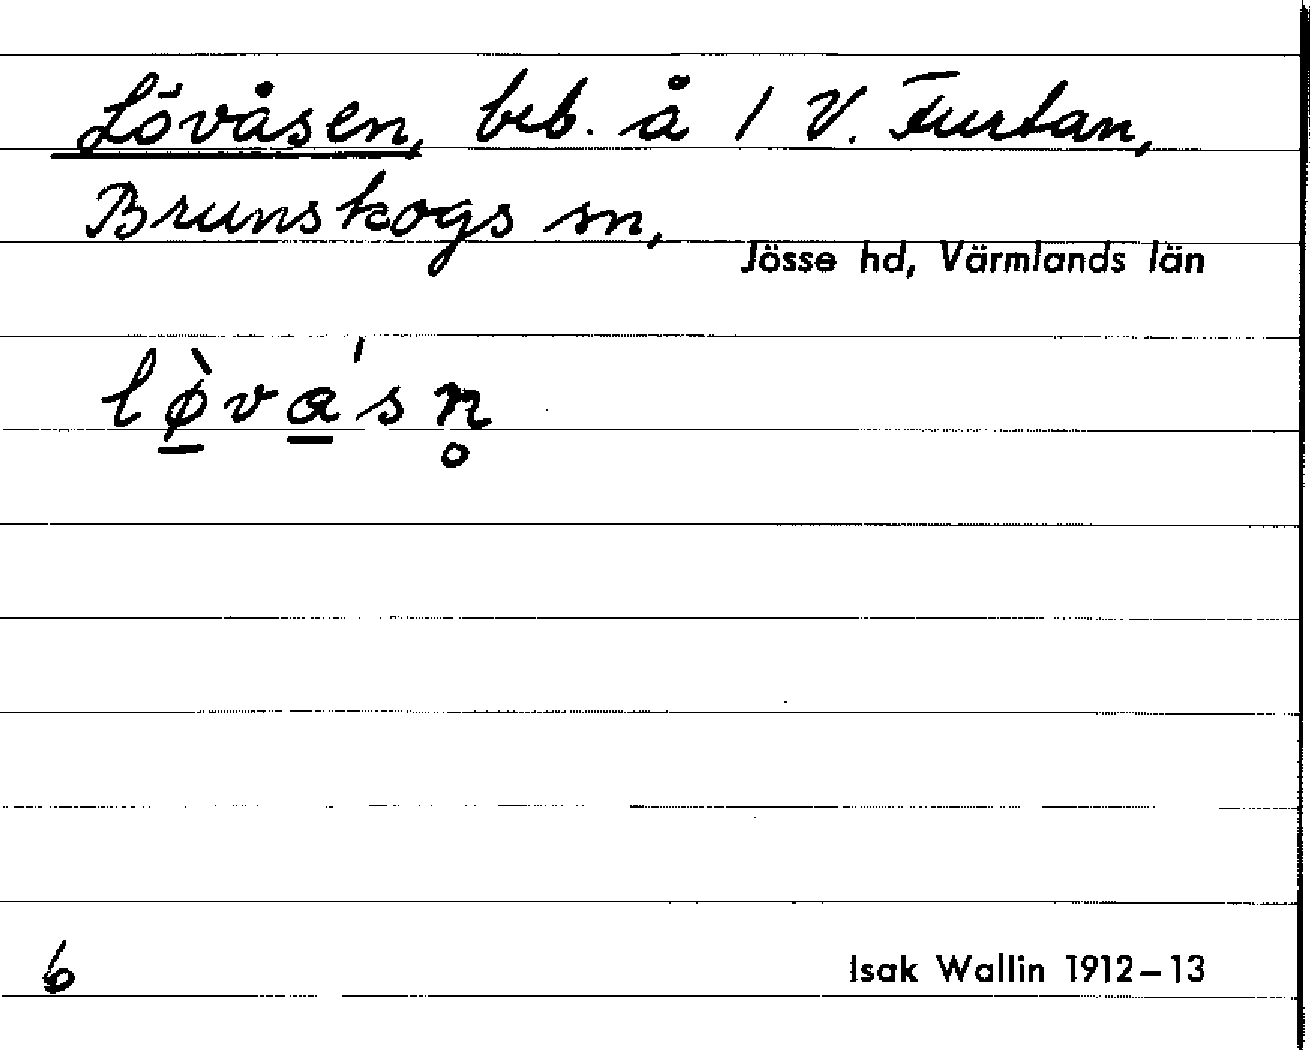 Lövåsen, beb. å 1 V. Furtan,
Brunskogs sn,
Jösse hd, Värmlands län
lø̱̀va̱'sn̥
6
Isak Wallin 1912–13